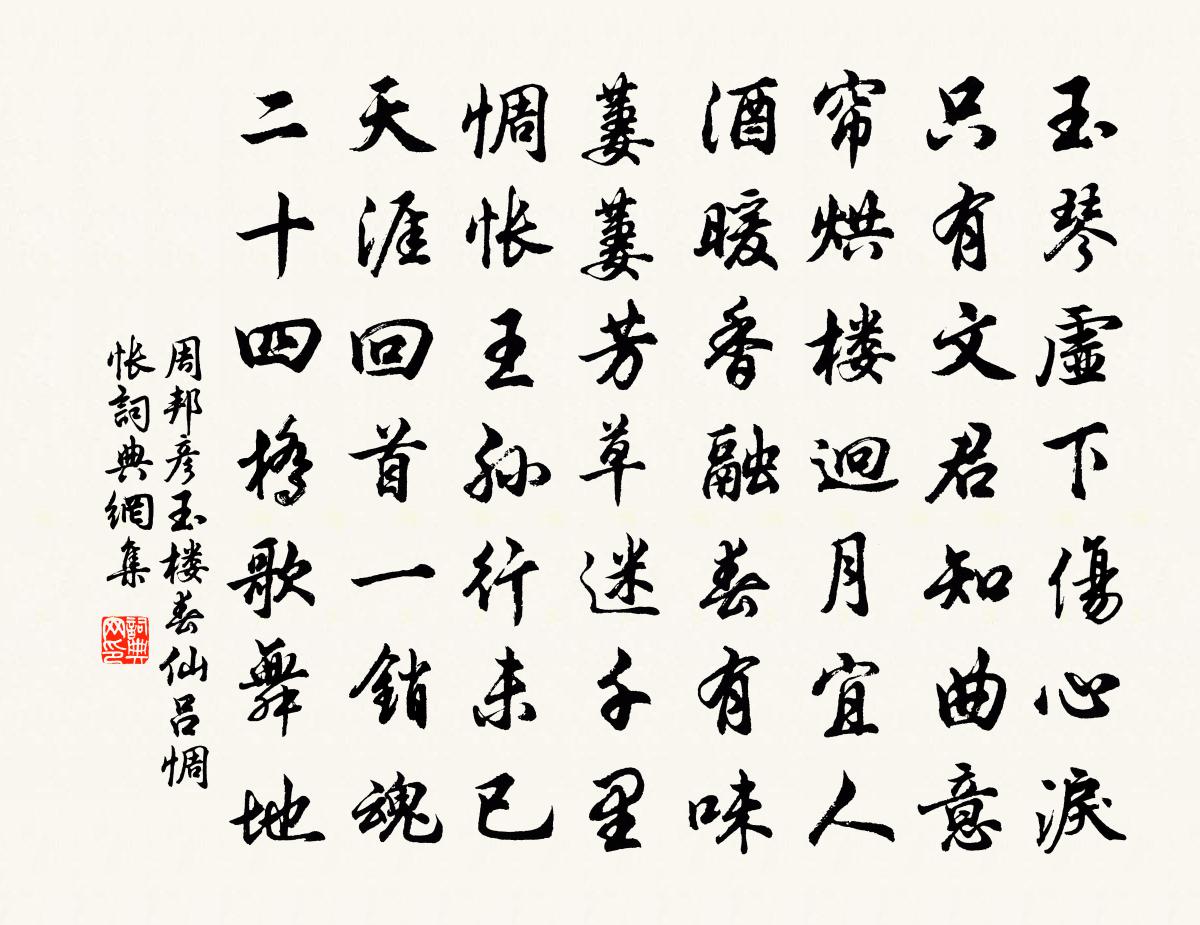 玉琴虛下傷心淚
只有文君知曲意
帘烘楼迥月宜人
酒暖香融春有味
萋萋芳草迷千里
惆怅王孙行未已
天涯回首一銷魂
二十四橋歌舞地
周邦彦玉楼春仙吕惆
怅詞典網集
詞典网印